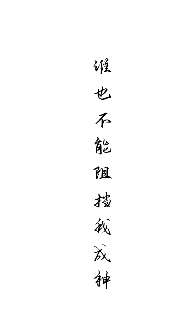 谁也不能阻挡我成神